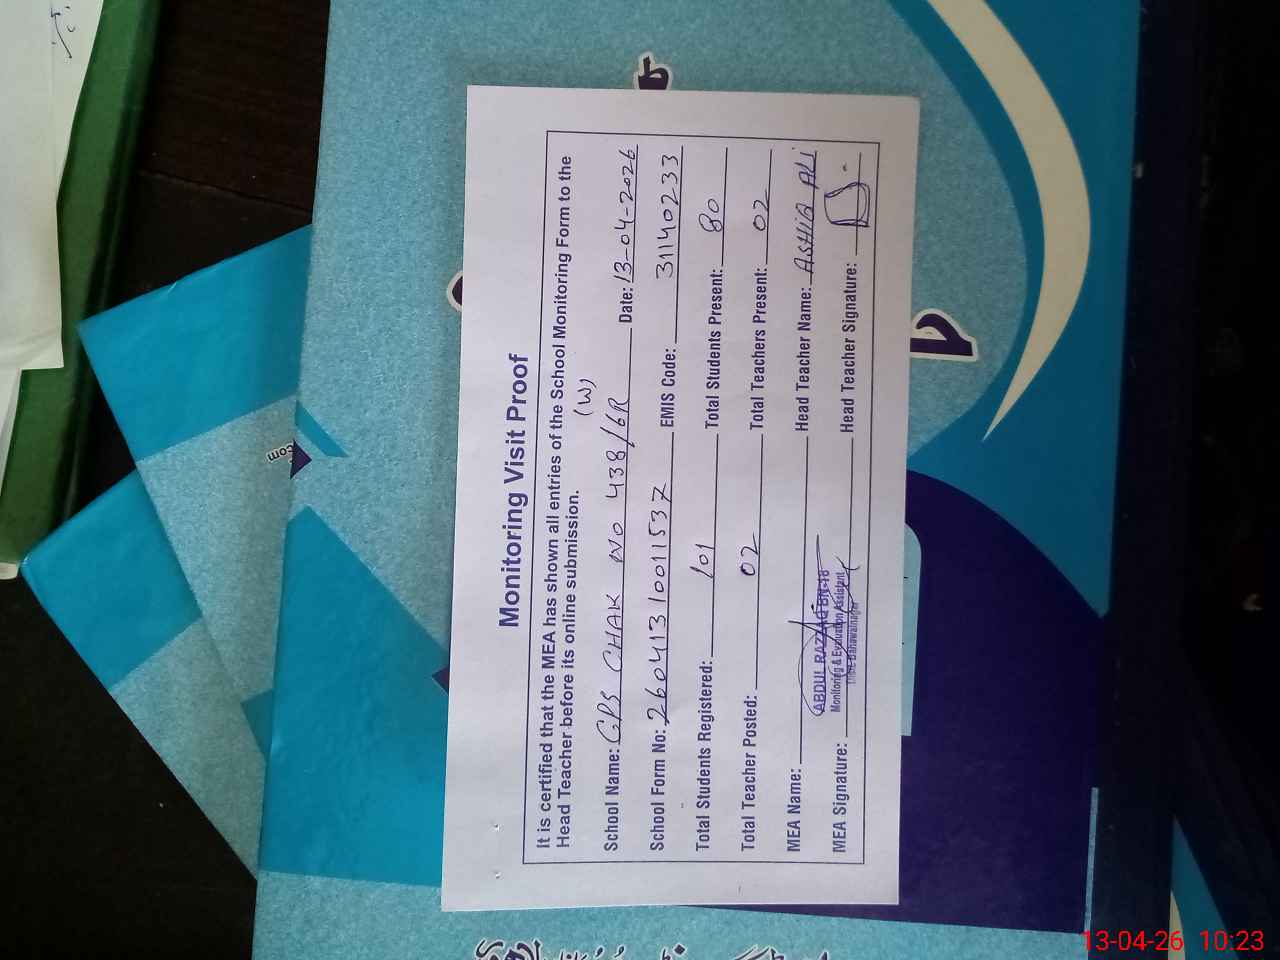 Monitoring Visit Proof
It is certified that the MEA has shown all entries of the School Monitoring Form to the
Head Teacher before its online submission.
School Name: GPS CHAK NO 438/6R (W) Date: 13-04-2026
School Form No: 26041310011537 EMIS Code: 31140233
Total Students Registered: 101 Total Students Present: 80
Total Teacher Posted: 02 Total Teachers Present: 02
MEA Name: ABDUL RAZZAQ BN-16 Head Teacher Name: ASHIQ ALI
Monitoring & Evaluation Assistant
MEA Signature: Head Teacher Signature:
Bahawalnagar
.com
13-04-26 10:23